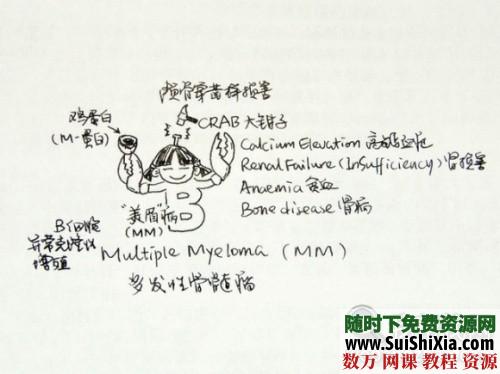 颅骨穿凿样损害
鸡蛋白
(M-蛋白)
CRAB 大钳子
Calcium Elevation 高钙血症
Renal Failure (Insufficiency) 肾损害
Anaemia 贫血
Bone disease 骨病
"美眉"病
(MM)
B
B细胞
异常克隆性
增殖
Multiple Myeloma (MM)
多发性骨髓瘤
随时下免费资源网
www.SuiShiXia.com
数万 网课 教程 资源